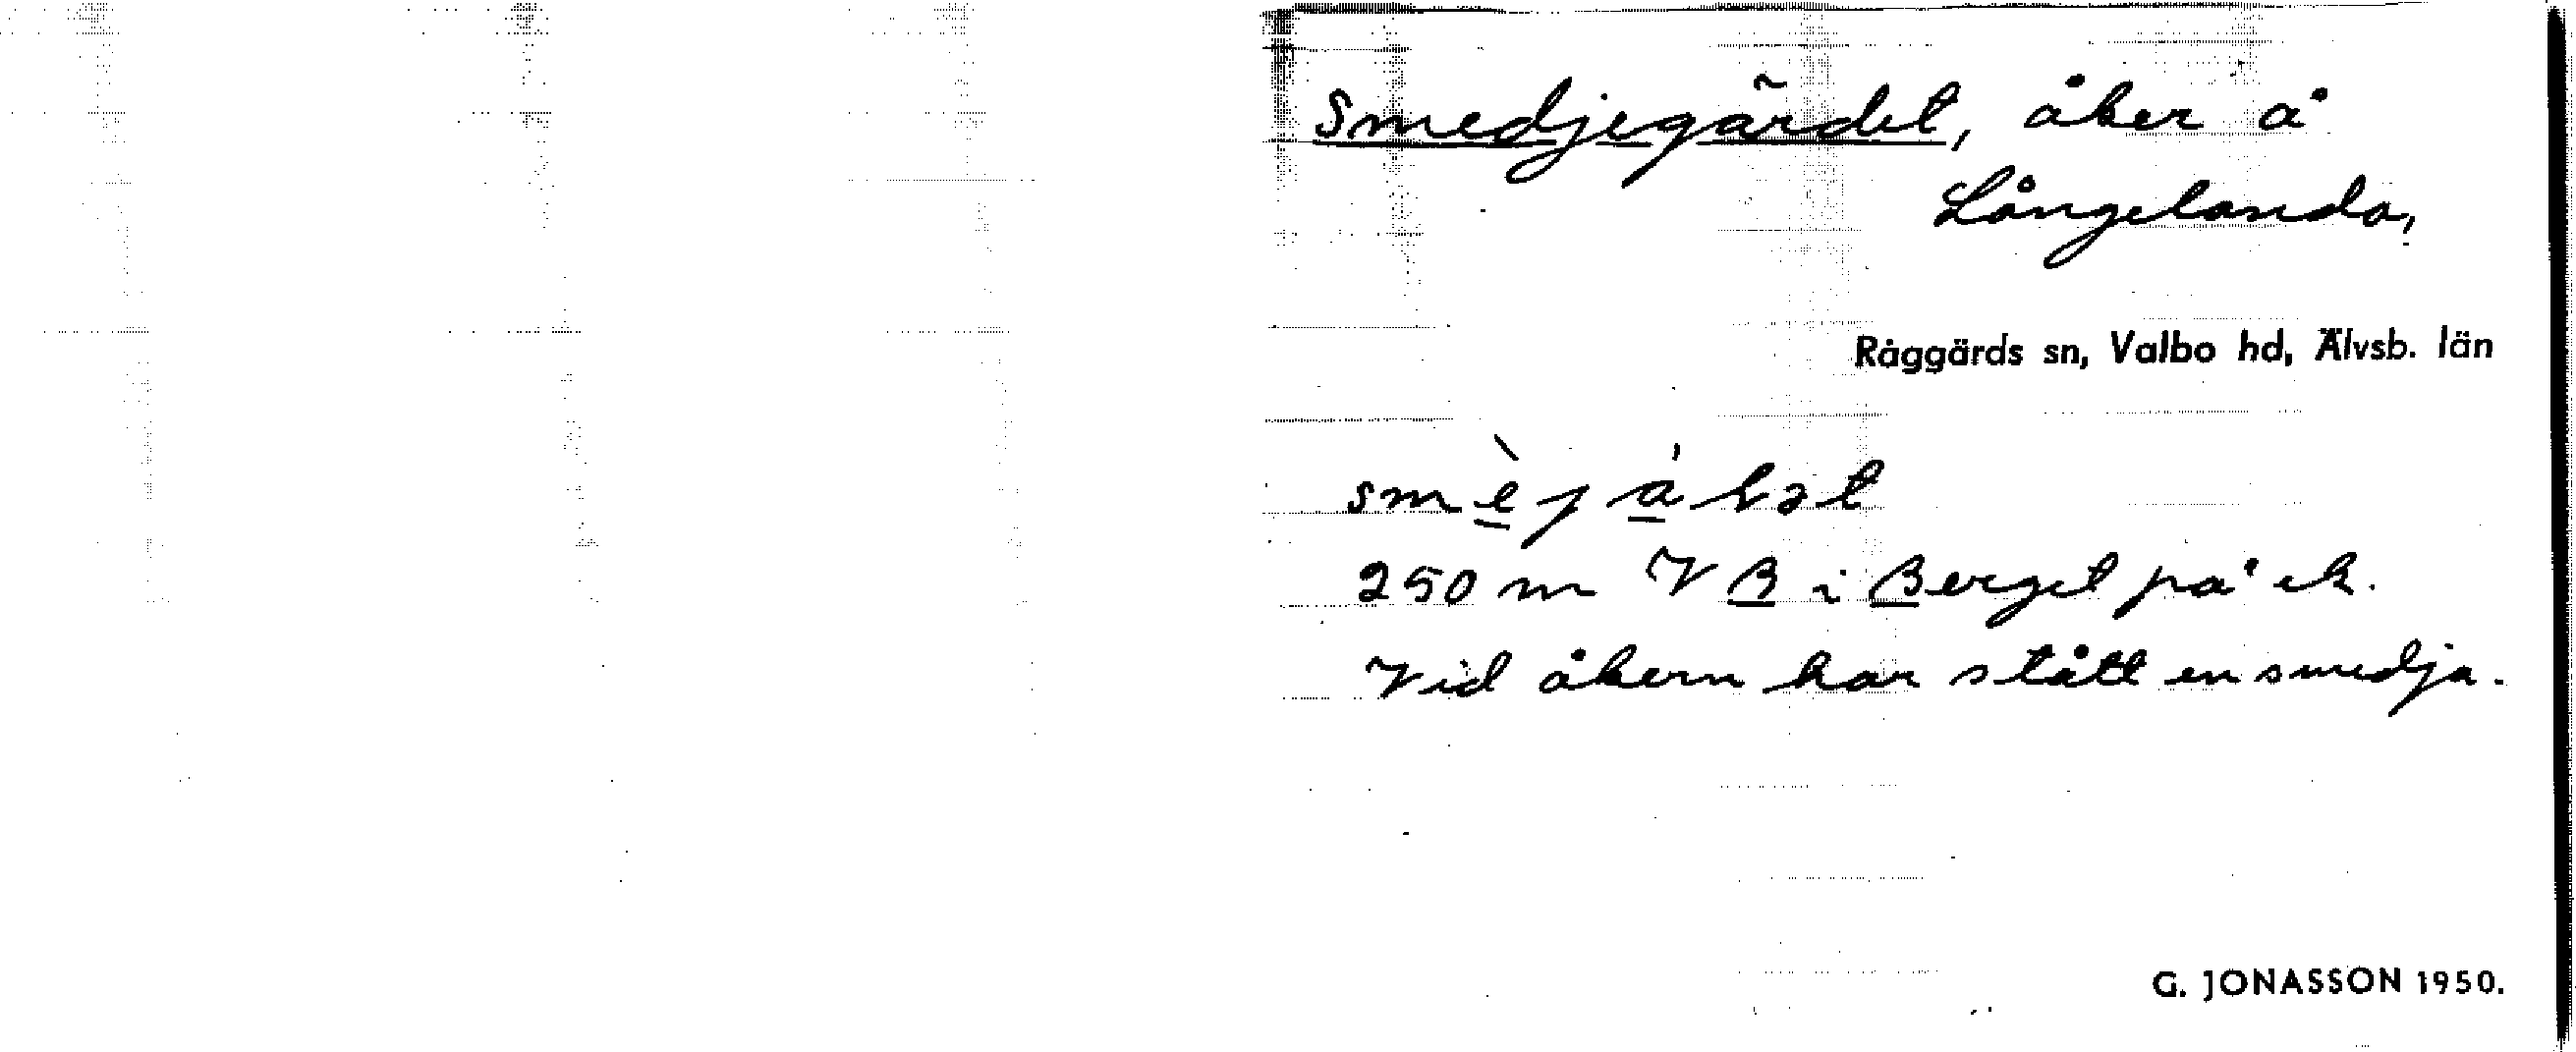 Smedjegärdet, åker å
Långelanda,
Råggärds sn, Valbo hd, Älvsb. län
250 m V B i Berget på ek.
Vid åkern har stått en smedja.
G. JONASSON 1950.